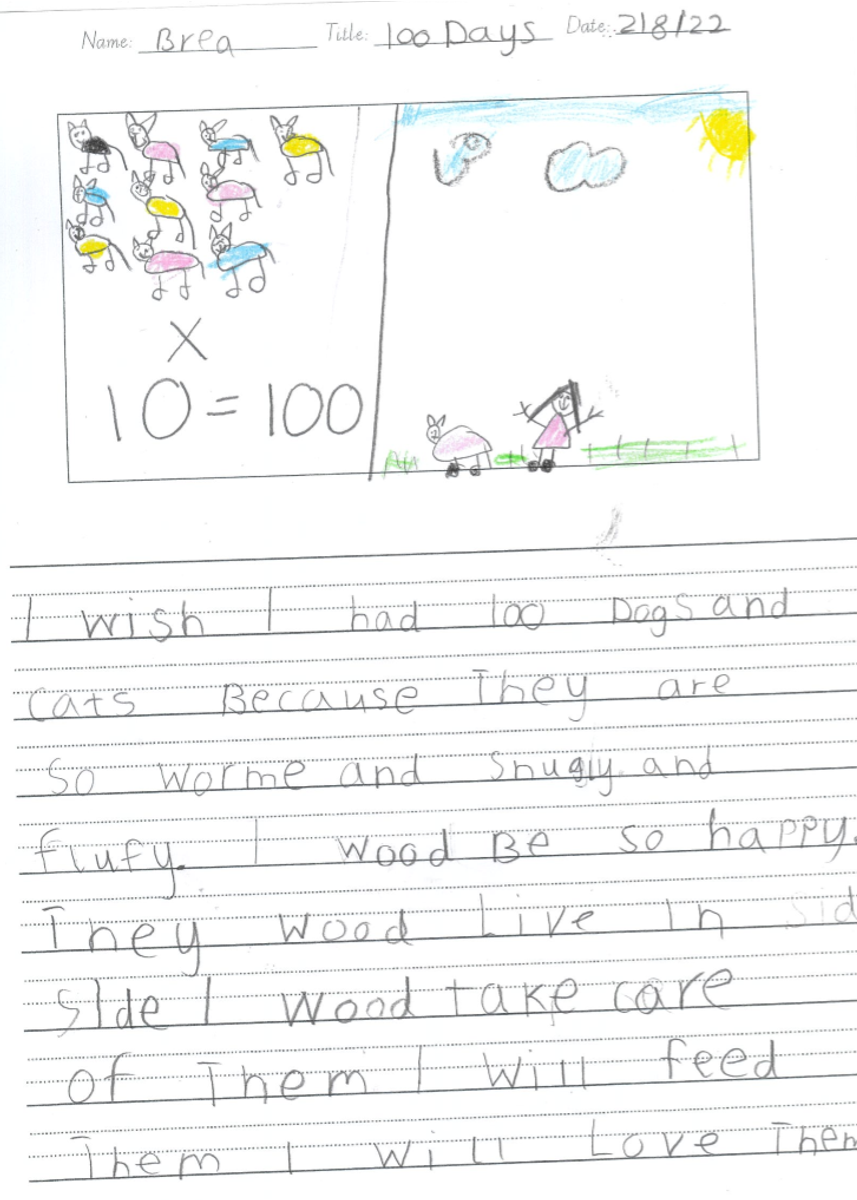 Name: Brea Title: 100 Days Date: 2/8/22
X
10=100
I wish I had 100 Dogs and
cats Because They are
So worme and Snugly and
flufy. I wood Be so happy.
They wood Live In sid
sIde I wood take care
of Them I will feed
Them I will Love Them